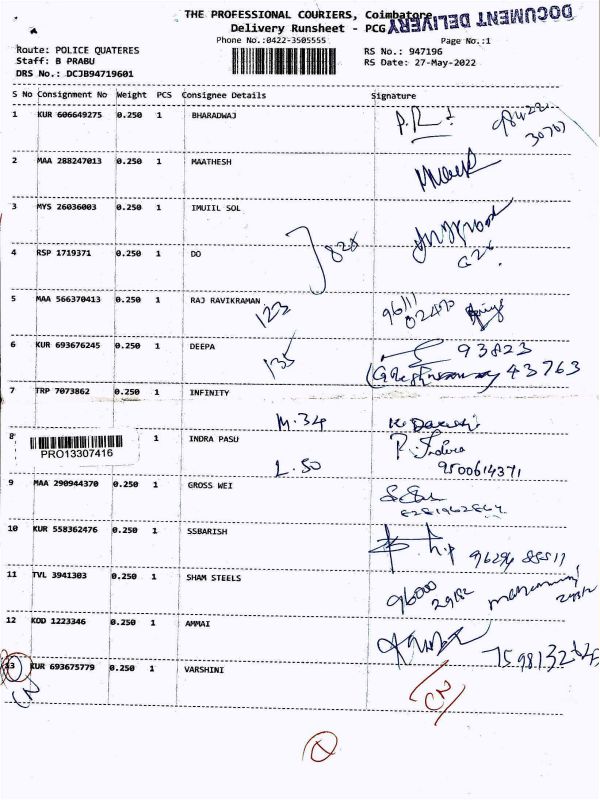 THE PROFESSIONAL COURIERS, Coimbatore
DOCUMENT DELIVERY
Delivery Runsheet - PCG
Phone No.:0422-3505555
Page No.:1
Route: POLICE QUATERES
RS No.: 947196
Staff: B PRABU
RS Date: 27-May-2022
DRS No.: DCJB94719601
S No Consignment No Weight PCS Consignee Details Signature
1 KUR 606649275 0.250 1 BHARADWAJ
P.R
98422
30707
2 MAA 288247013 0.250 1 MAATHESH
3 MYS 26036003 0.250 1 IMUIIL SOL
4 RSP 1719371 0.250 1 DO
5 MAA 566370413 0.250 1 RAJ RAVIKRAMAN
123
96111
02470
6 KUR 693676245 0.250 1 DEEPA
135
93823
43763
7 TRP 7073862 0.250 1 INFINITY
M.34
8 1 INDRA PASU
PRO13307416
P. Indira
L.50
9500614371
9 MAA 290944370 0.250 1 GROSS WEI
10 KUR 558362476 0.250 1 SSBARISH
11 TVL 3941303 0.250 1 SHAM STEELS
96000
12 KOD 1223346 0.250 1 AMMAI
13 KUR 693675779 0.250 1 VARSHINI
CN
CN